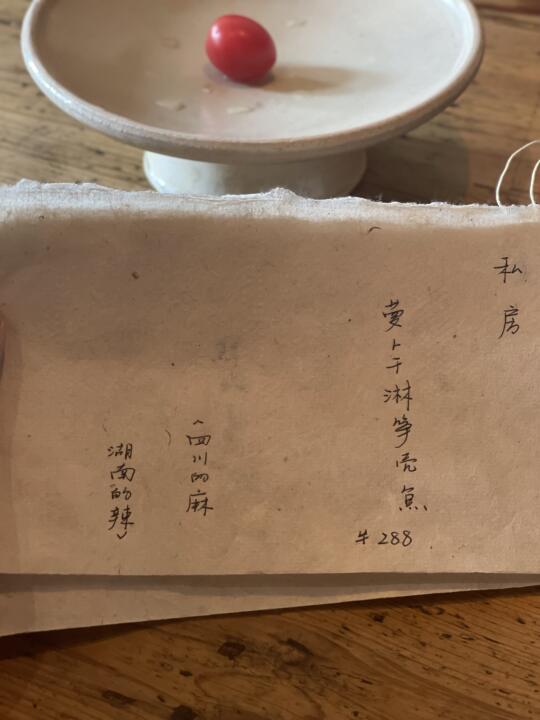 私房
萝卜干淋笋壳鱼
¥288
(四川的麻
湖南的辣)